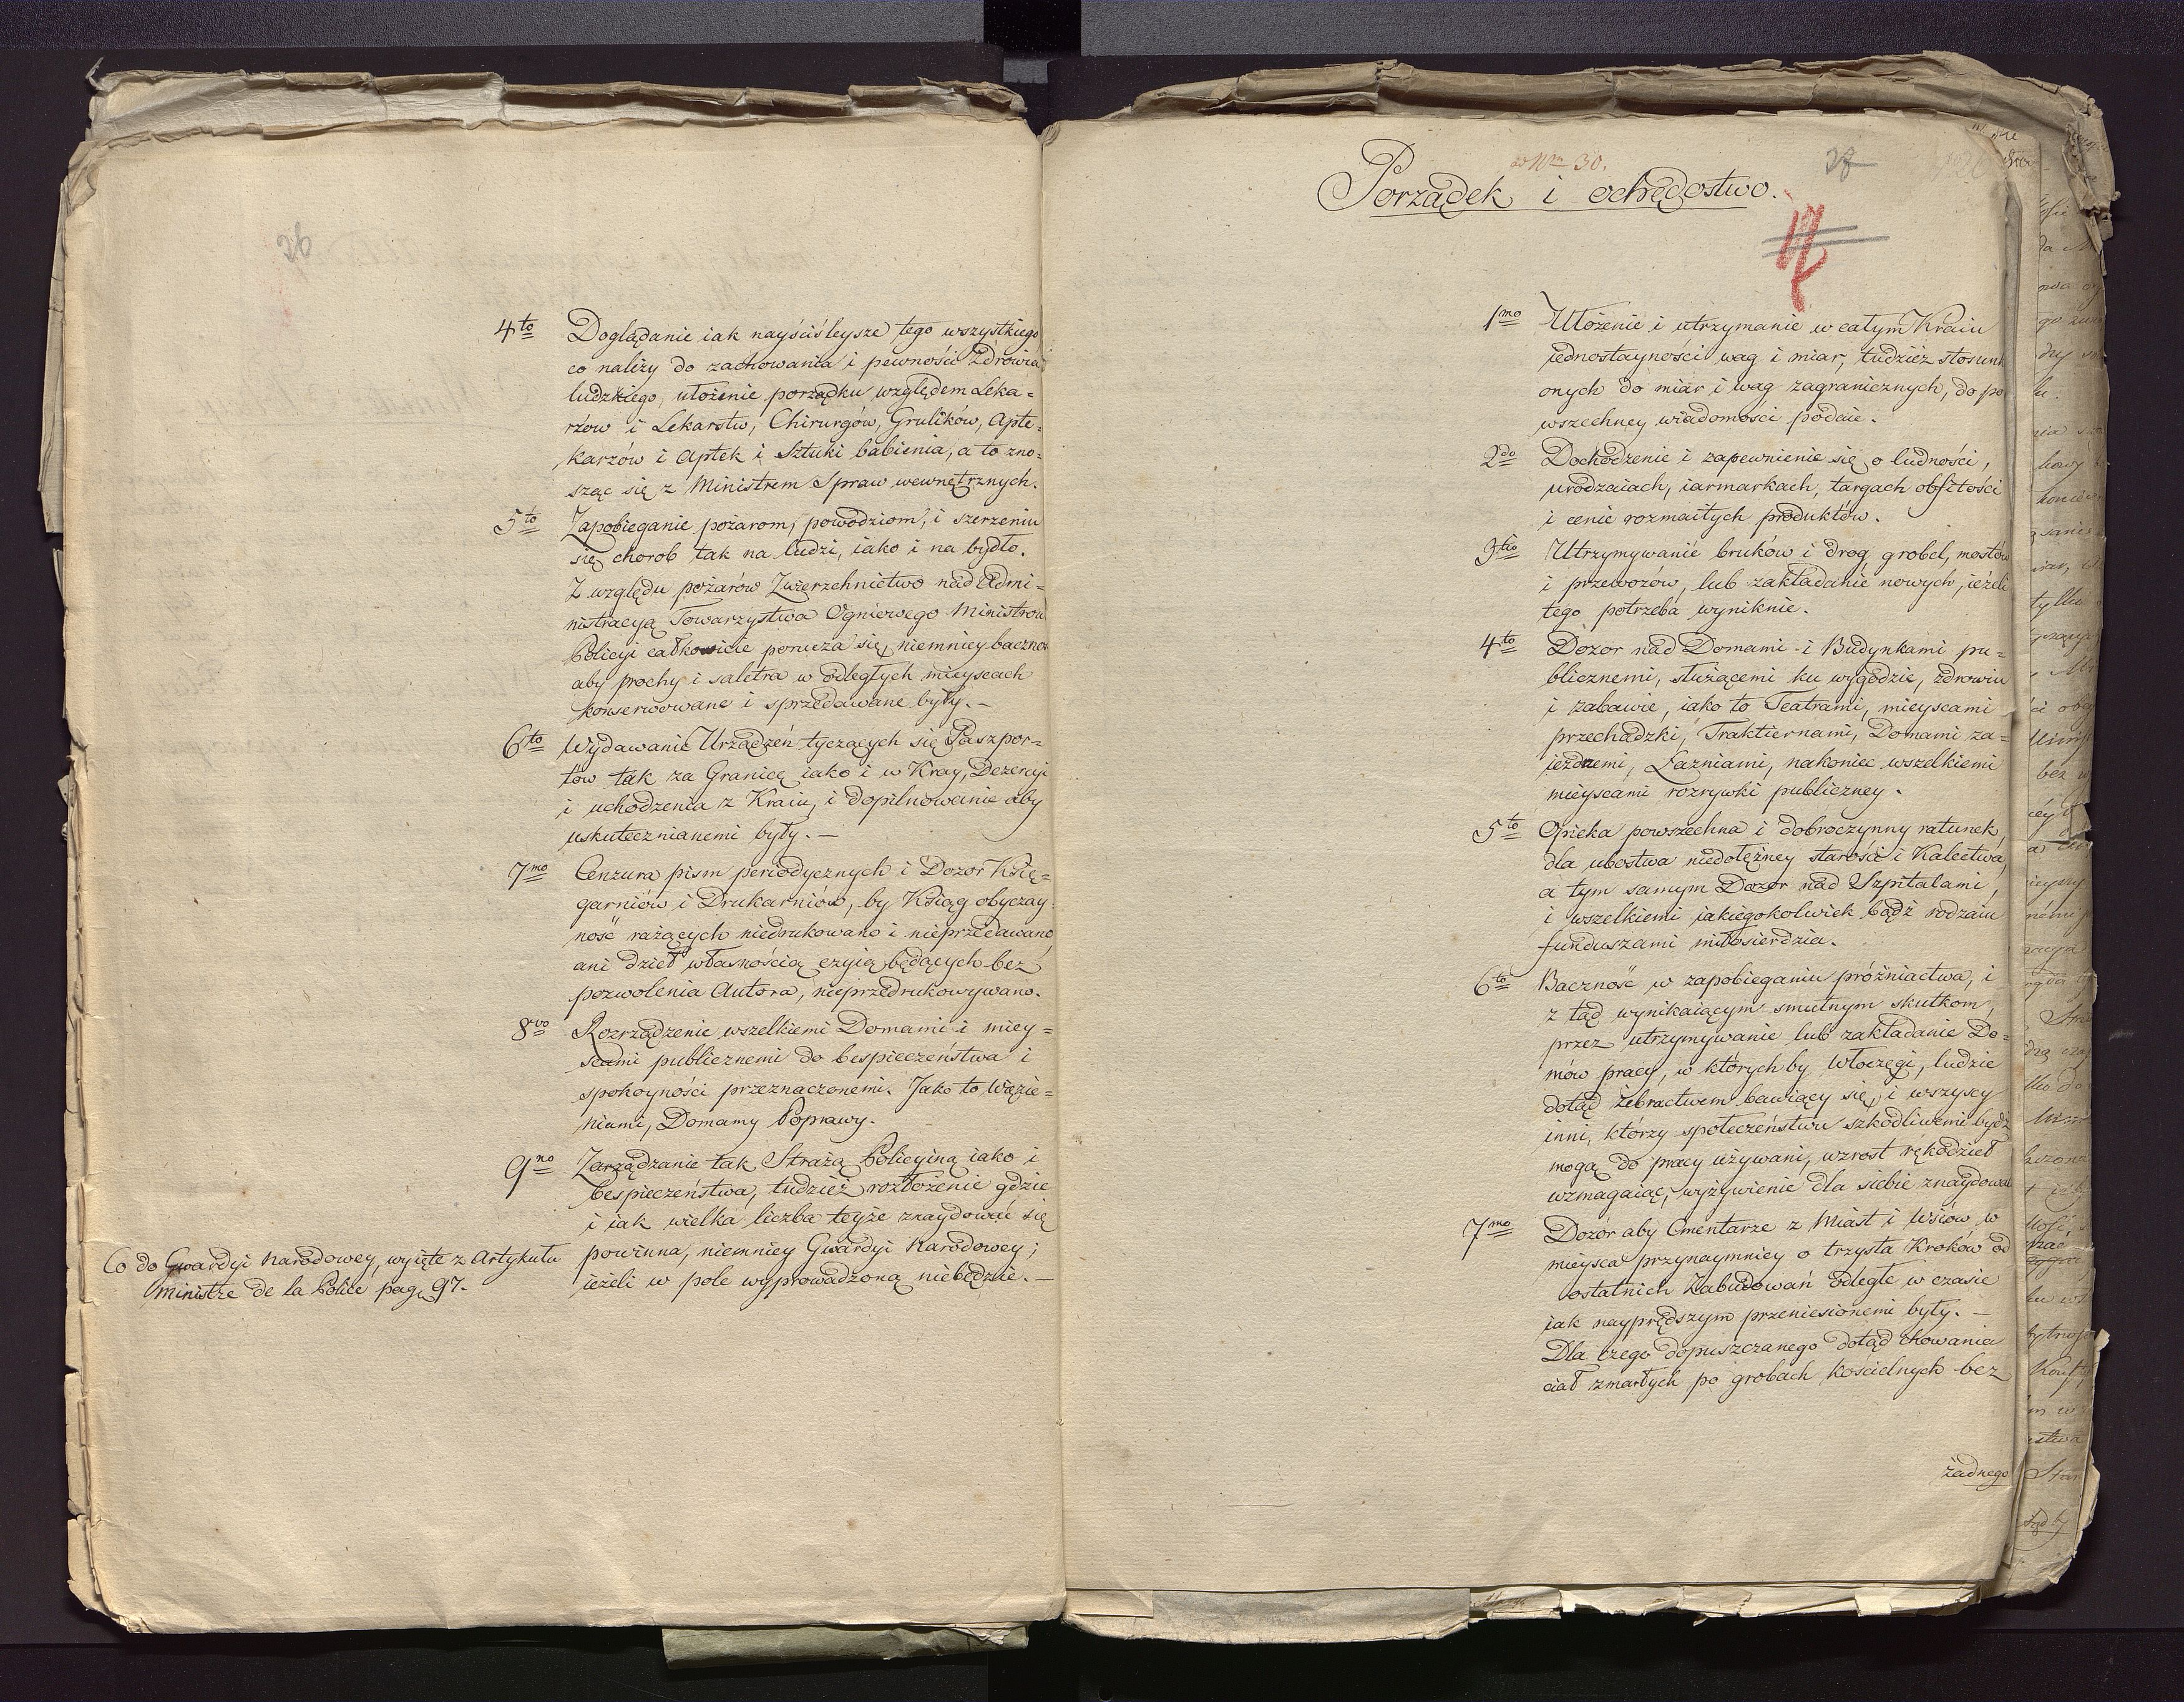 4to Doglądanie iak nayściśleysze tego wszystkiego
co należy do zachowania i pewności Zdrowia
ludzkiego, ułożenie porządku względem Leka=
rzow i Lekarstw, Chirurgów, Grulików, Apte=
karzów i Aptek i Sztuki babienia, a to zno=
sząc się z Ministrem Spraw wewnętrznych.
5to Zapobieganie pożarom, powodziom, i szerzeniu
się chorob tak na ludzi, iako i na bydło.
Z względu pożarów Zwierzchnictwo nad Admi=
nistracyą Towarzystwa Ogniowego Ministrowi
Policyi całkowicie porucza się, niemniey baczność
aby prochy i saletra w odległych mieyscach
konserwowane i sprzedawane były. –
6to Wydawanie Urządzeń tyczących się Paszpor=
tów tak za Granicę iako i w Kray, Dezercyi
i uchodzenia z Kraiu, i dopilnowanie aby
uskutecznianemi były. –
7mo Cenzura pism periodycznych i Dozor Księ=
garniów i Drukarniów, by Ksiąg obyczay=
ność rażących niedrukowano i nieprzedawano,
ani dzieł własnością czyią będących bez
pozwolenia Autora, nieprzedrukowywano.
8vo Rozrządzenie wszelkiemi Domami i miey=
scami publicznemi do bespieczeństwa i
spokoyności przeznaczonemi. Jako to Więzie=
niami, Domamy Poprawy.
9no Zarządzanie tak Strażą Policyiną iako i
bespieczeństwa, tudzież rozłożenie gdzie
i iak wielka liczba teyże znaydować się
powinna, niemniey Gwardyi Narodowey;
ieżeli w pole wyprowadzoną niebędzie. –
Co do Gwardyi Narodowey, wyięte z Artykułu
Ministre de la Police pag. 97.
26
ad Nm 30.
28
Porządek i ochędostwo.
1mo Ułożenie i utrzymanie w całym Kraiu
iednostayności wag i miar, tudzież stosunk
onych do miar i wag zagranicznych, do po
wszechney wiadomości podaie.
2do Dochodzenie i zapewnienie się o ludności,
urodzaiach, iarmarkach, targach obfitości
i cenie rozmaitych produktów.
3tio Utrzymywanie bruków i drog, grobel, mostów
i przewozów, lub zakładanie nowych, ieżeli
tego potrzeba wyniknie.
4to Dozor nad Domami i Budynkami pu=
blicznemi, służącemi ku wygodzie, zdrowiu
i zabawie, iako to Teatrami, mieyscami
przechadzki, Traktiernami, Domami za=
iezdnemi, Łaźniami, nakoniec wszelkiemi
mieyscami rozrywki publiczney.
5to Opieka powszechna i dobroczynny ratunek,
dla ubostwa niedołężney starości i Kalectwa,
a tym samym Dozor nad Szpitalami,
i wszelkiemi iakiegokolwiek bądź rodzaiu
funduszami miłosierdzia.
6to Baczność w zapobieganiu próżniactwa, i
z tąd wynikaiącym smutnym skutkom,
przez utrzymywanie lub zakładanie Do=
mów pracy, w których by Włoczęgi, ludzie
dotąd żebractwem bawiący się, i wszyscy
inni, którzy społeczeństwu szkodliwemi bydź
mogą do pracy używani, wzrost rękodzieł
wzmagaiąc, wyżywienie dla siebie znaydowal
7mo Dozór aby Cmentarze z Miast i Wsiów w
mieysca przynaymniey o trzysta Kroków od
ostatnich Zabudowań odległe w czasie
iak nayprędszym przeniesionemi były. –
Dla czego dopuszczanego dotąd chowania
ciał zmarłych po grobach kościelnych bez
żadnego